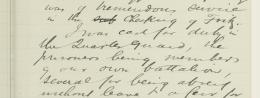 was of tremendous service
in the checking of
I was cast for duty in
the Quarter Guard, the
prisoners being members
of our own battalion
several for being absent
without leave a for